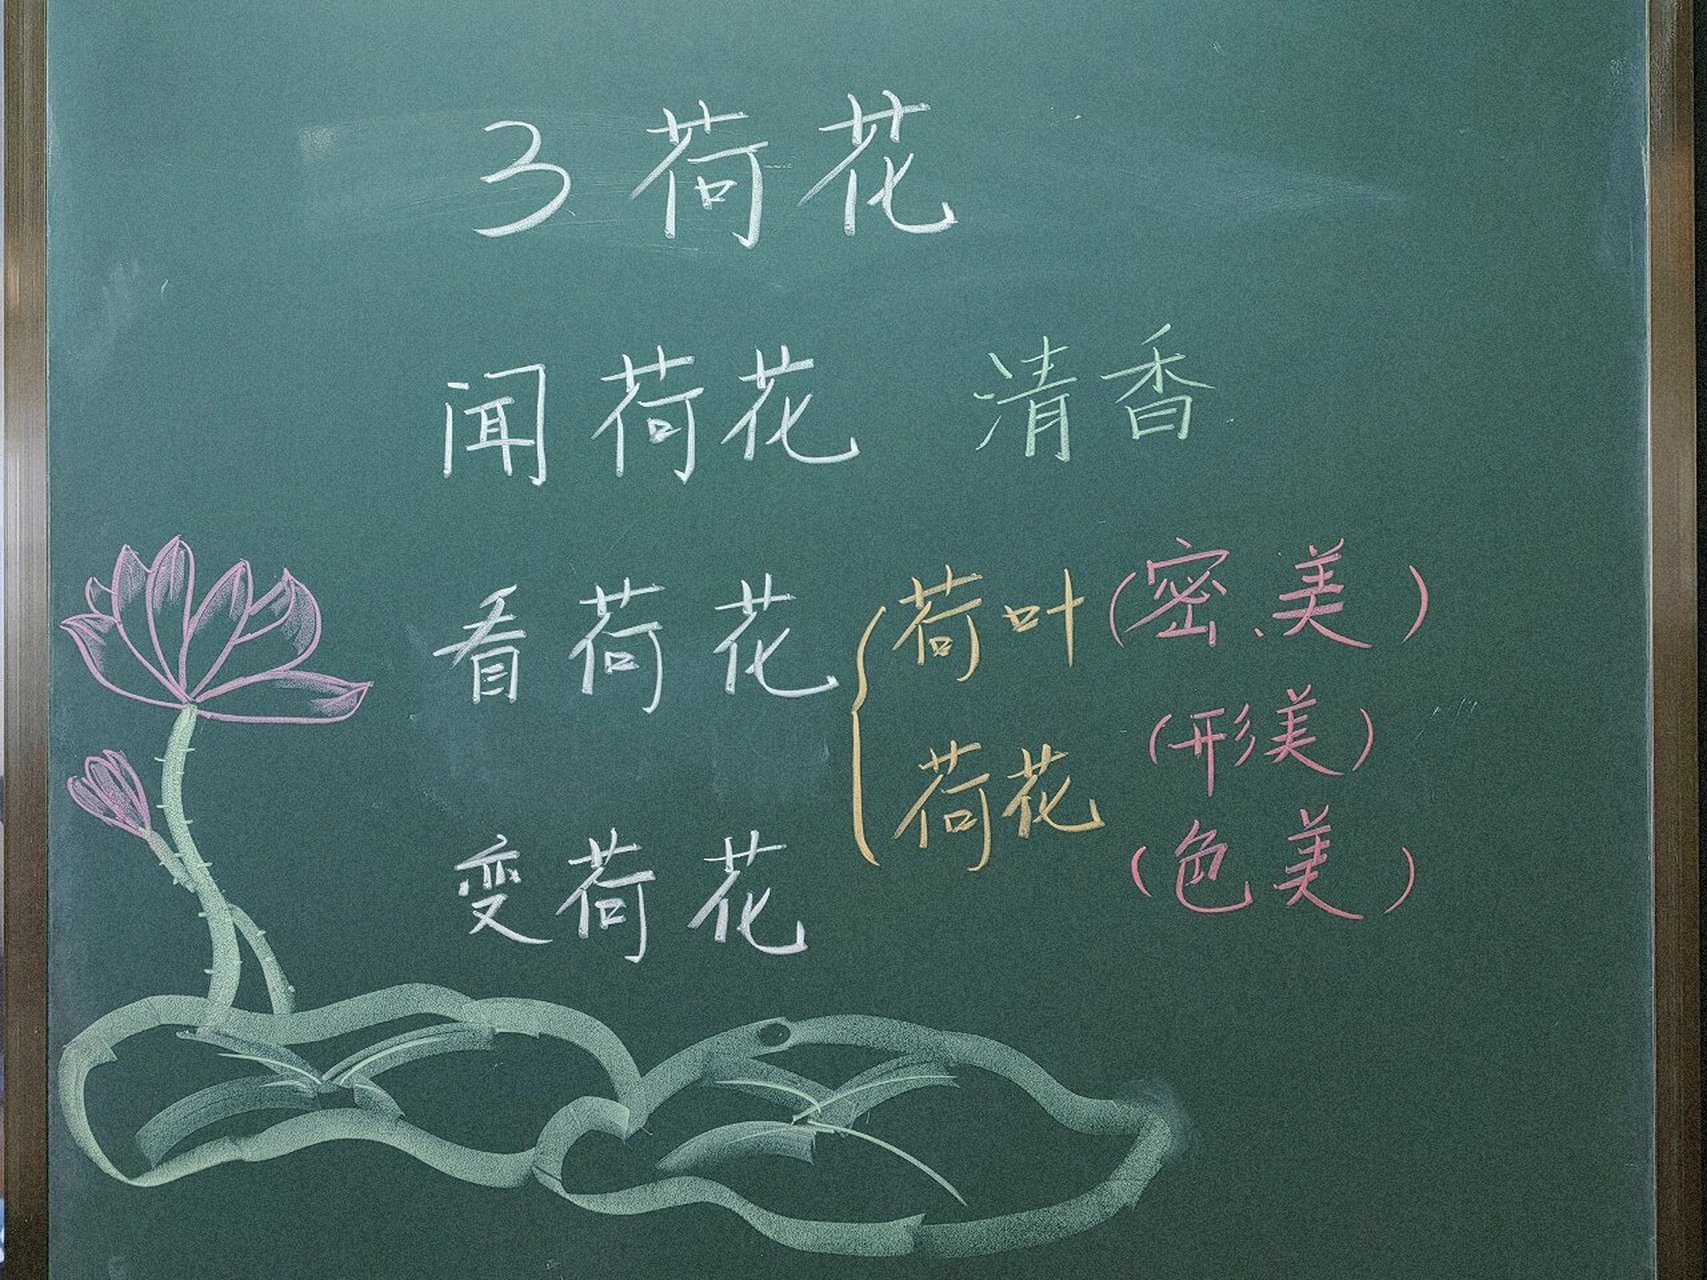 3 荷花
闻荷花 清香
看荷花 { 荷叶 (密、美)
(形美)
荷花
(色美)
变荷花